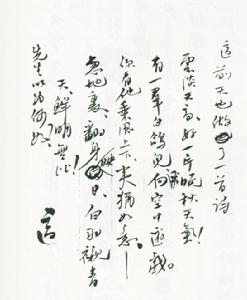 適前天也做了一首詩
雲淡天高,好一片晚秋天氣!
有一羣白鴿兒向空中遊戲。
你看他乘風上下,夷猶如意,—
忽地裏,翻身映日,白羽襯青
天,鮮明無比!
先生以為何如?
適